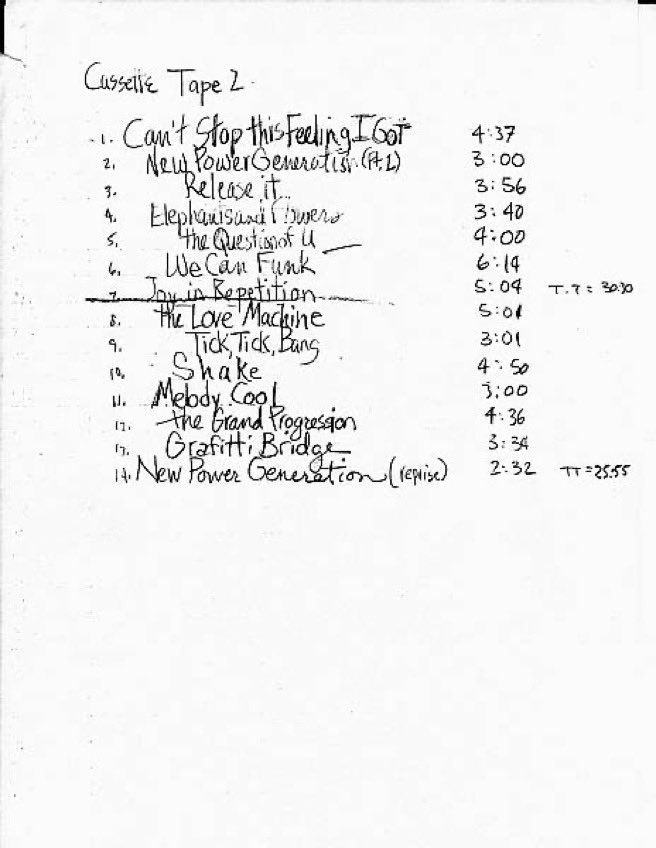 Cassette Tape 2
1. Can't Stop this Feeling I Got 4:37
2. New Power Generation (Pt. 1) 3:00
3. Release it 3:56
4. Elephants and Flowers 3:40
5. the Question of U 4:00
6. We Can Funk 6:14
7. Joy in Repetition 5:04 T.T = 30:30
8. the Love Machine 5:01
9. Tick, Tick, Bang 3:01
10. Shake 4:50
11. Melody Cool 3:00
12. the Grand Progression 4:36
13. Grafitti Bridge 3:34
14. New Power Generation (reprise) 2:32 TT = 25:55